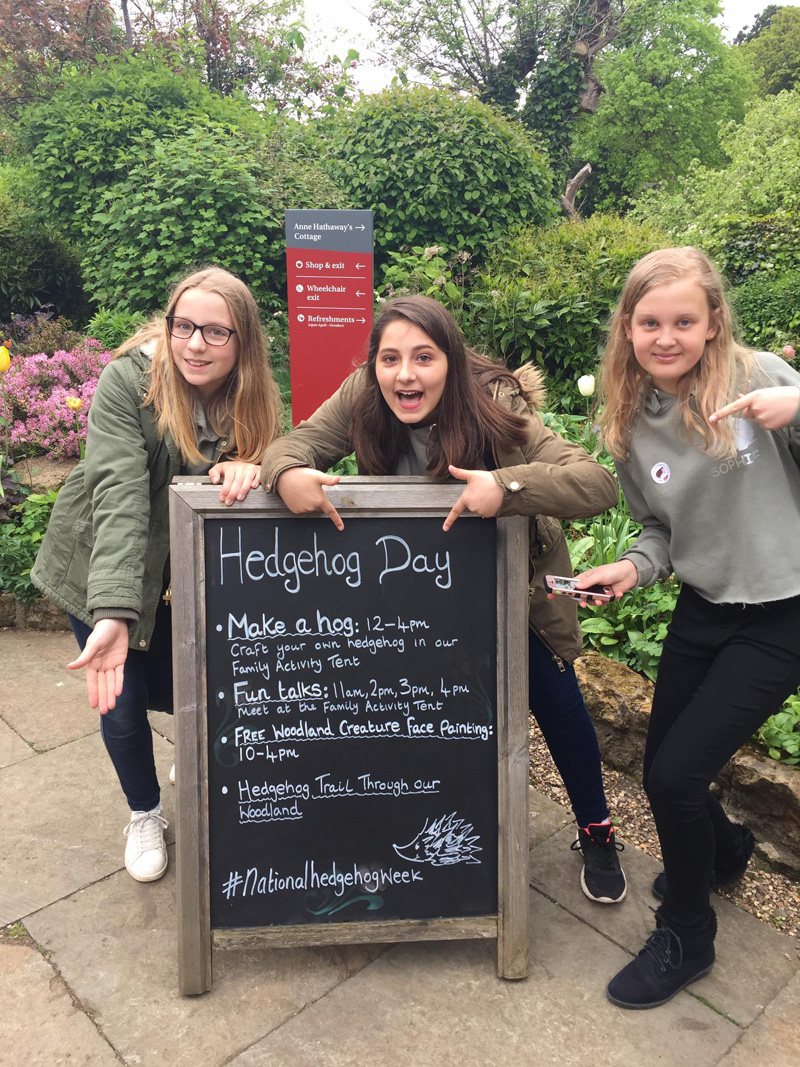 Anne Hathaway's →
Cottage
Shop & exit ←
Wheelchair
exit ←
Refreshments →
(open April – October)
SOPHIE
Hedgehog Day
• Make a hog: 12-4pm
Craft your own hedgehog in our
Family Activity Tent
• Fun talks: 11am, 2pm, 3pm, 4pm
meet at the Family Activity Tent
• FREE Woodland Creature Face Painting:
10-4pm
• Hedgehog Trail Through our
Woodland
#NationalhedgehogWeek